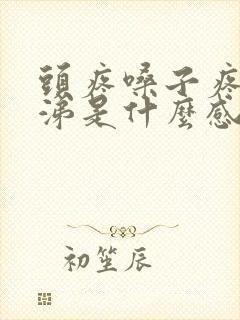 頭疼嗓子疼
涕是什麼感
初笙辰